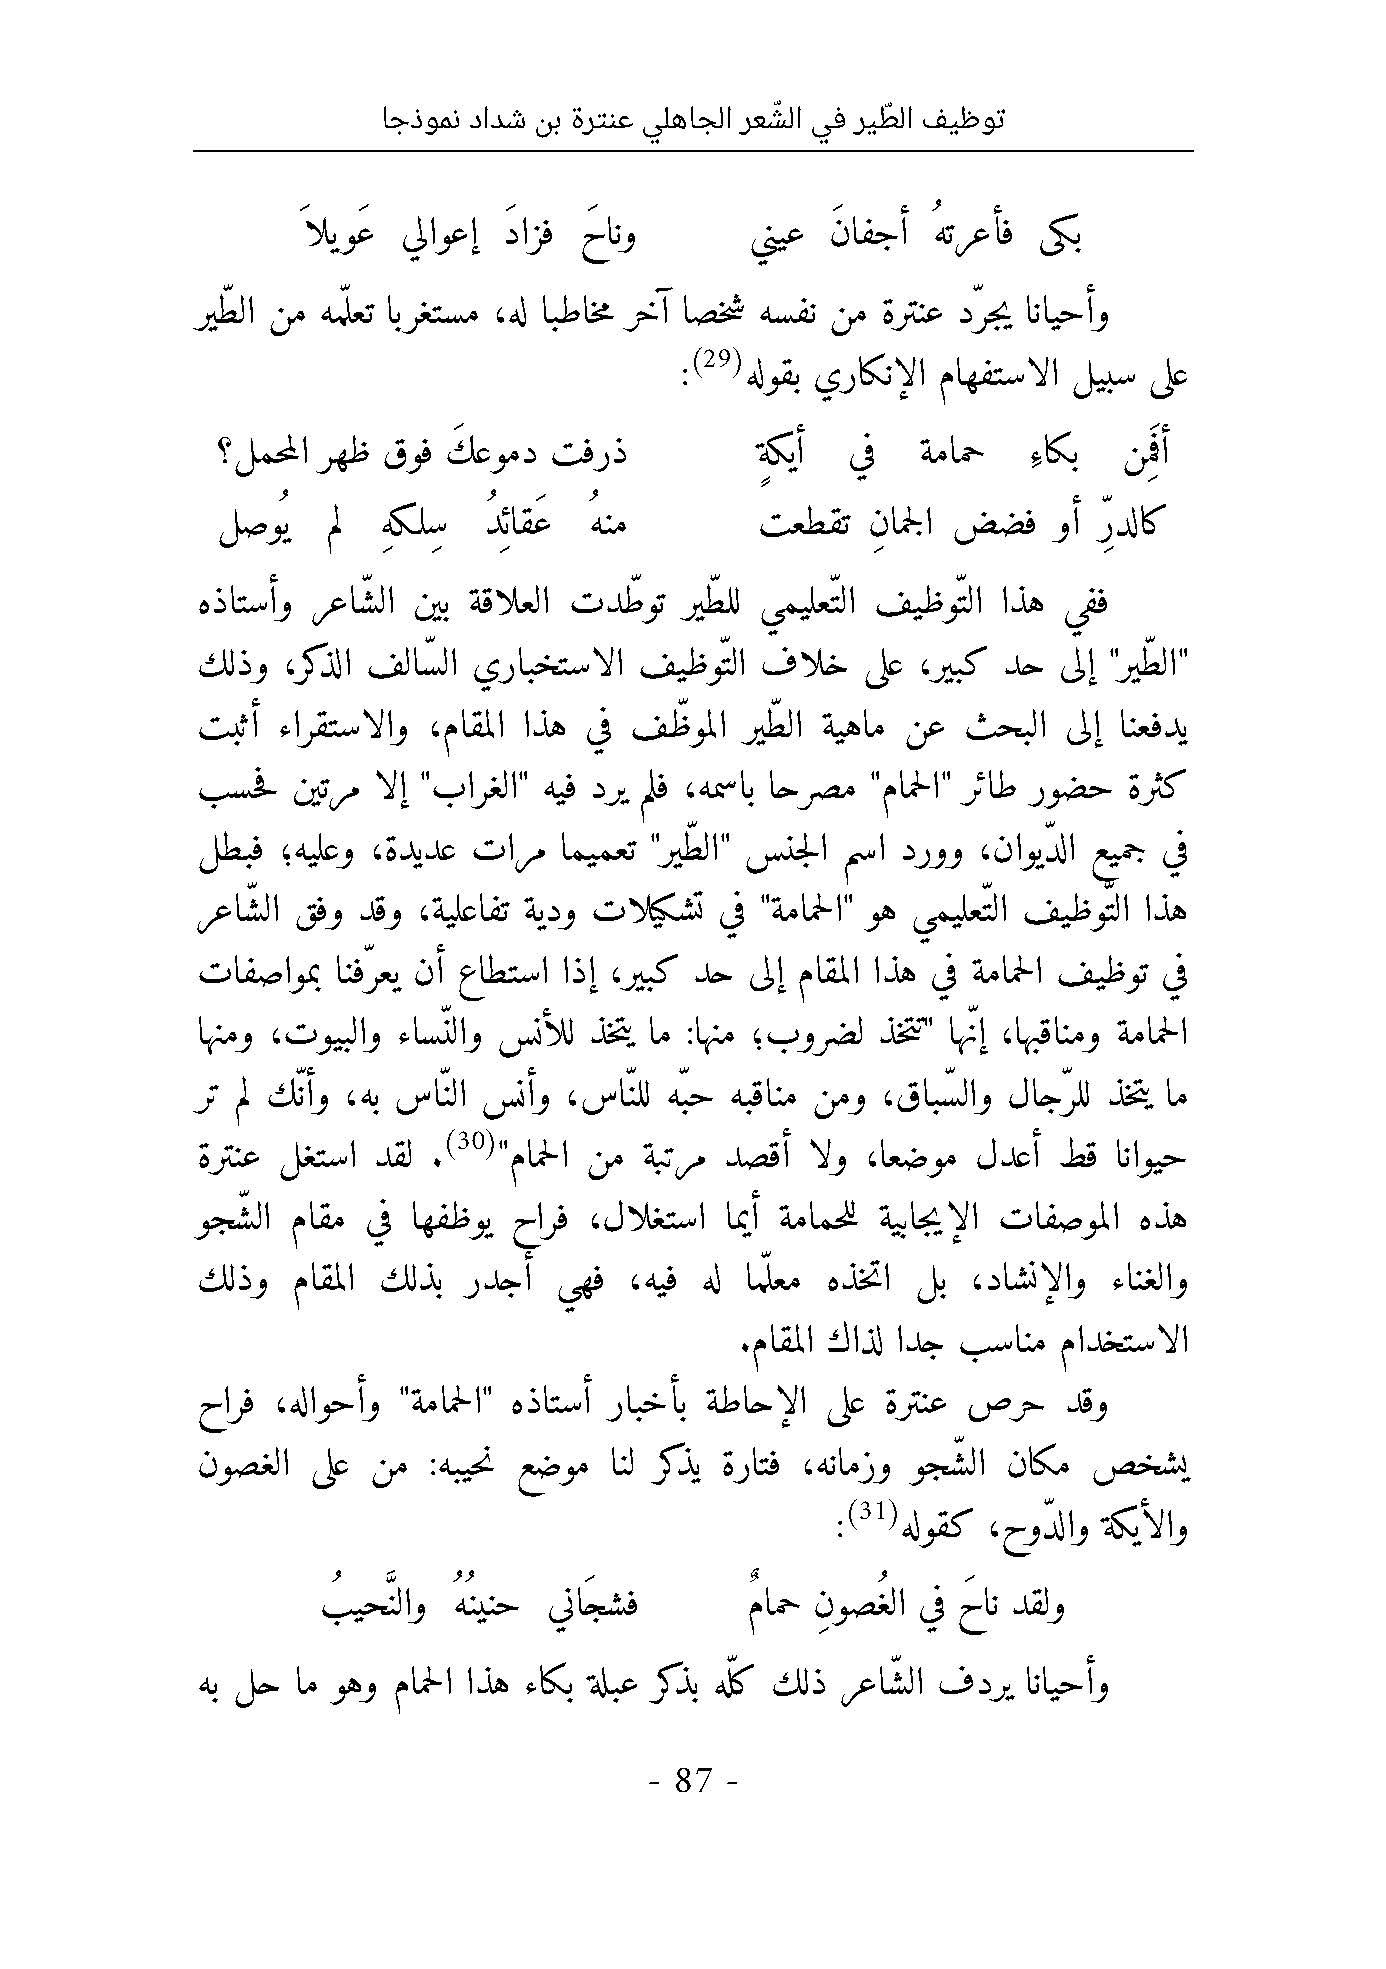 توظيف الطّير في الشّعر الجاهلي عنترة بن شداد نموذجا
بكى فأعرتهُ أجفانَ عيني وناحَ فزادَ إعوالي عَويلاَ
وأحيانا يجرّد عنترة من نفسه شخصا آخر مخاطبا له، مستغربا تعلّمه من الطّير
على سبيل الاستفهام الإنكاري بقوله(29):
أفَمِن بكاءِ حمامة في أيكةٍ ذرفت دموعكَ فوق ظهر المحمل؟
كالدرِّ أو فضض الجمانِ تقطعت منهُ عَقائِدُ سِلكِهِ لم يُوصل
ففي هذا التّوظيف التّعليمي للطّير توطّدت العلاقة بين الشّاعر وأستاذه
"الطّير" إلى حد كبير، على خلاف التّوظيف الاستخباري السّالف الذكر، وذلك
يدفعنا إلى البحث عن ماهية الطّير الموظّف في هذا المقام، والاستقراء أثبت
كثرة حضور طائر "الحمام" مصرحا باسمه، فلم يرد فيه "الغراب" إلا مرتين فحسب
في جميع الدّيوان، وورود اسم الجنس "الطّير" تعميما مرات عديدة، وعليه؛ فبطل
هذا التّوظيف التّعليمي هو "الحمامة" في تشكيلات ودية تفاعلية، وقد وفق الشّاعر
في توظيف الحمامة في هذا المقام إلى حد كبير، إذا استطاع أن يعرّفنا بمواصفات
الحمامة ومناقبها، إنّها "تتخذ لضروب؛ منها: ما يتخذ للأنس والنّساء والبيوت، ومنها
ما يتخذ للرّجال والسّباق، ومن مناقبه حبّه للنّاس، وأنس النّاس به، وأنّك لم تر
حيوانا قط أعدل موضعا، ولا أقصد مرتبة من الحمام"(30). لقد استغل عنترة
هذه المواصفات الإيجابية للحمامة أيما استغلال، فراح يوظفها في مقام الشّجو
والغناء والإنشاد، بل اتخذه معلّما له فيه، فهي أجدر بذلك المقام وذلك
الاستخدام مناسب جدا لذاك المقام.
وقد حرص عنترة على الإحاطة بأخبار أستاذه "الحمامة" وأحواله، فراح
يشخص مكان الشّجو وزمانه، فتارة يذكر لنا موضع نحيبه: من على الغصون
والأيكة والدّوح، كقوله(31):
ولقد ناحَ في الغُصونِ حمامٌ فشجَاني حنينُهُ والنَّحيبُ
وأحيانا يردف الشّاعر ذلك كلّه بذكر عبلة بكاء هذا الحمام وهو ما حل به
- 87 -